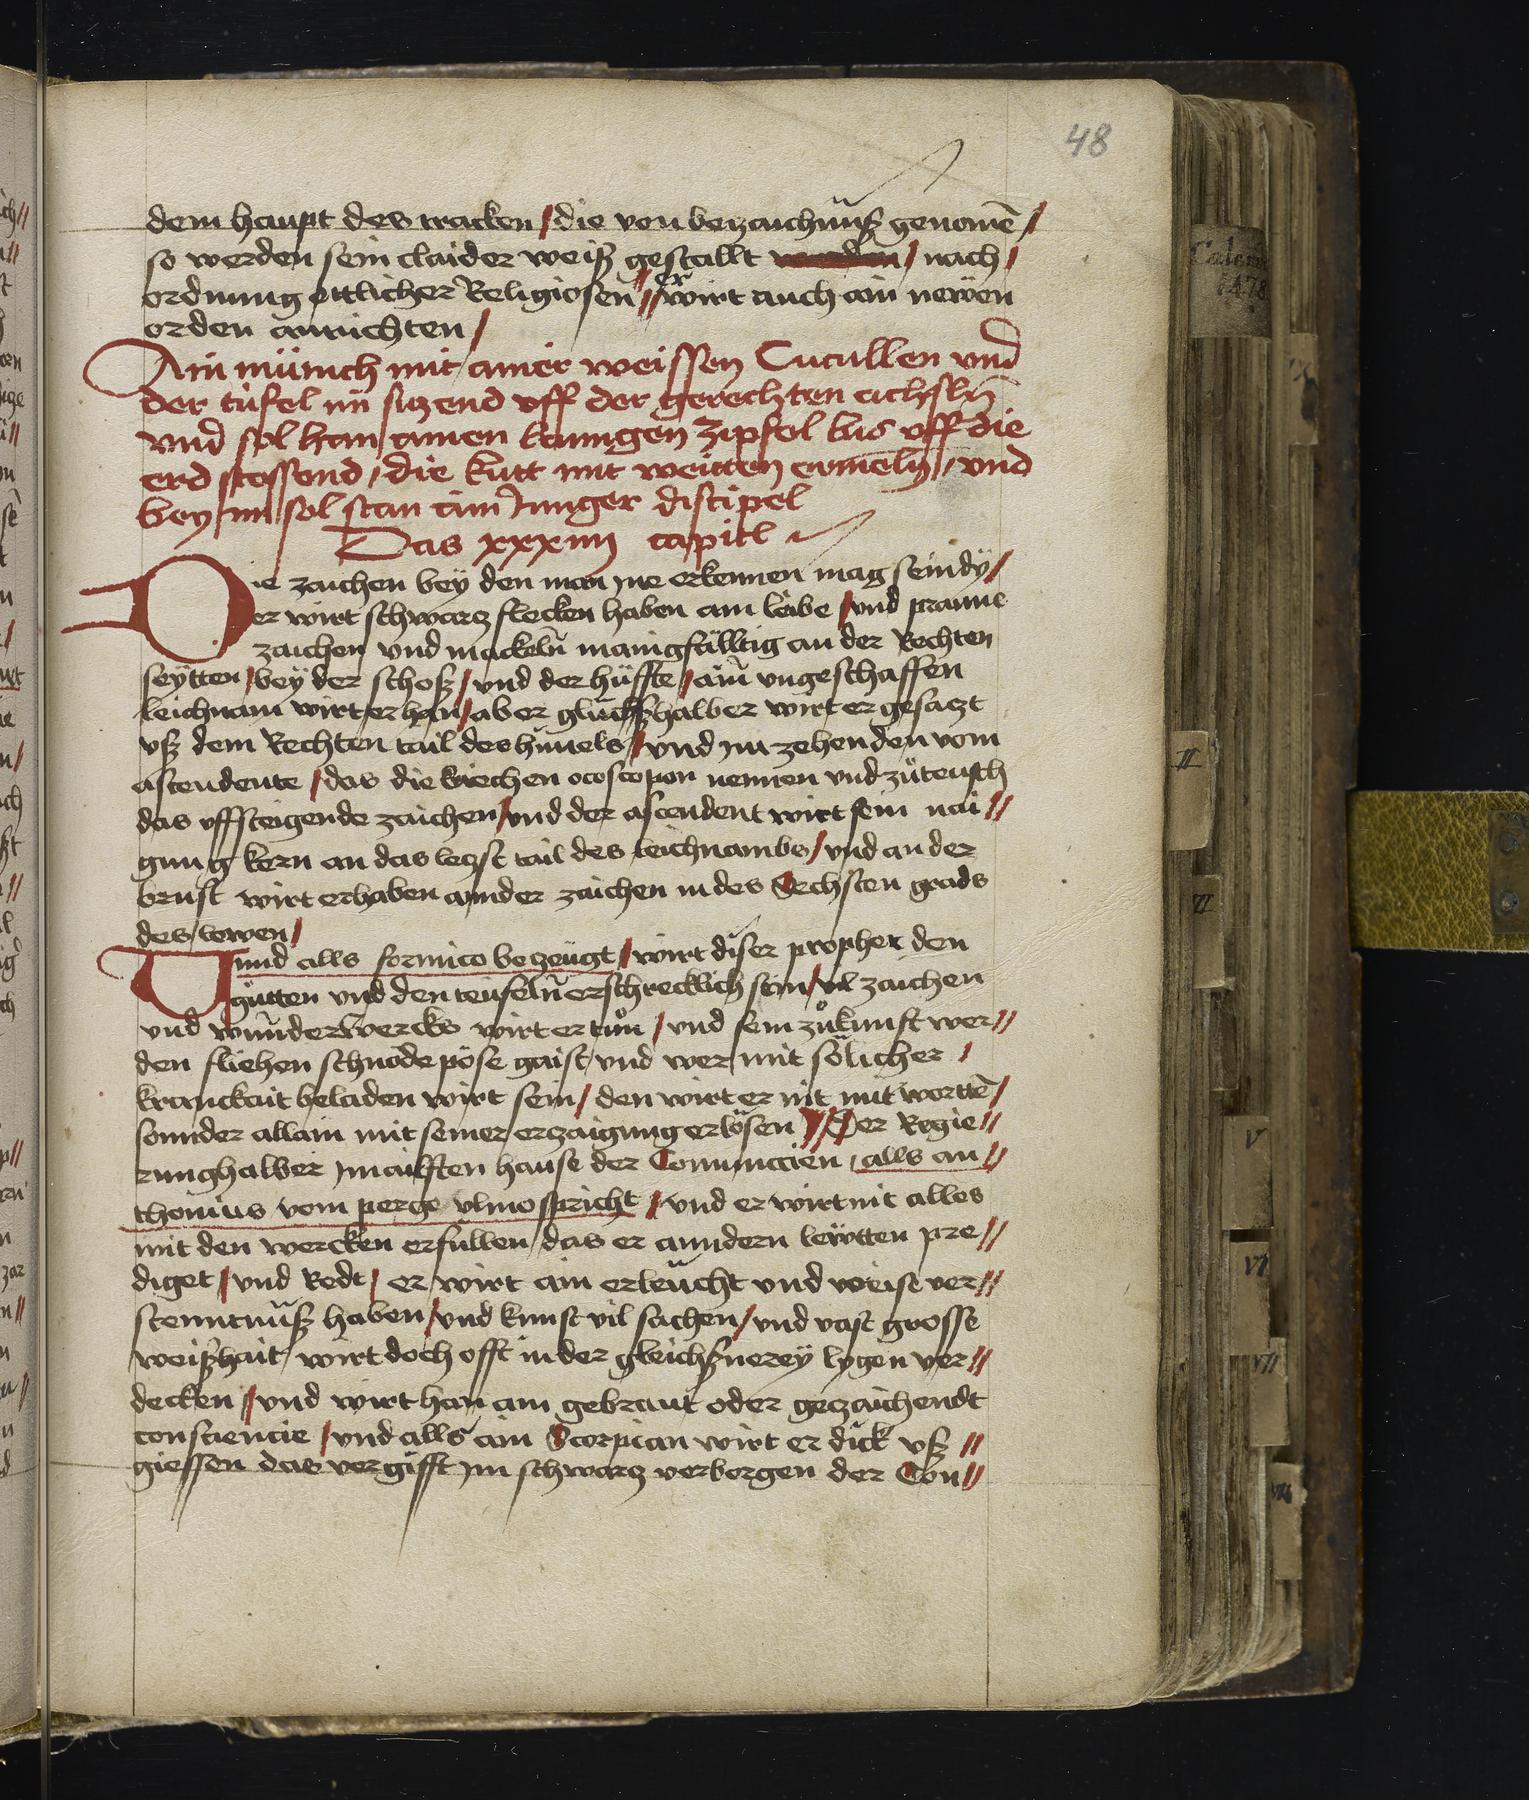 48
dem haupt des tracken / die von bezaichnuß genomē /
so werden sein claider weiß gestallt / nach /
ordnung ettlicher Religiosen // er wirt auch ain newen
orden anrichten /
Ain münich mit ainer weissen Cucullen vnd
der tüfel im sizend vff der gerechten achsln̄
vnd sol han ainen langen zipfel bis vff die
erd stossend / die kutt mit weitten ermeln̄ / vnd
bey im sol stan ain Junger discipel
Das xxxiiij capitl
Die zaichen bey den man jne erkennen mag seindy /
er wirt schwarz flecken haben am leibe / vnd praune
zaichen vnd mackeln̄ manigfälltig an der Rechten
seÿtten / bey der schoß / vnd der hüffte / ain vngeschaffen
leichnam wirt er han / aber glückßhalber wirt er gesazt
vß dem Rechten tail des himels / vnd jm zehenden vom
ascendente / das die kriechen ocoscopon nennen vnd zů teusch
das vffsteigende zaichen / vnd der ascendent wirt sein nai //
gung kern an das lezst tail des leichnambs / vnd an der
brust wirt er haben annder zaichen in des Sechsten grads
des lewen /
Vnnd alls formico bezeügt / wirt diser prophet den
gütten vnd den teufeln̄ erschrecklich sein / vil zaichen
vnd wunderwercks wirt er tůn / vnd sein zůkunft wer //
den fliehen schnöde pöse gaist vnd wer mit sölicher /
kranckait beladen wirt sein / den wirt er nit mit wortten̄ /
sonnder allain mit seiner erzaigung erlösen // Der Regie //
runghalber jm ailfften hause der Coniunccien / alls an //
thonius vom perge vlmo spricht / vnd er wirt nit alles
mit den wercken erfüllen / das er anndern leẅtten pre //
diget / vnd Redt / er wirt ain erleücht vnd weise ver //
stenntnuß haben / vnd kunst vil sachen / vnd vast grosse
weißhait / wirt doch offt in der gleichßnereÿ lygen ver //
decken // vnd wirt han ain gebrant oder gezaichendt
consciencie / vnd alls ain Scorpian wirt er dick vß //
giessen das vergifft jm schwarz verborgen der Con //
1478
II
V
VI
VII